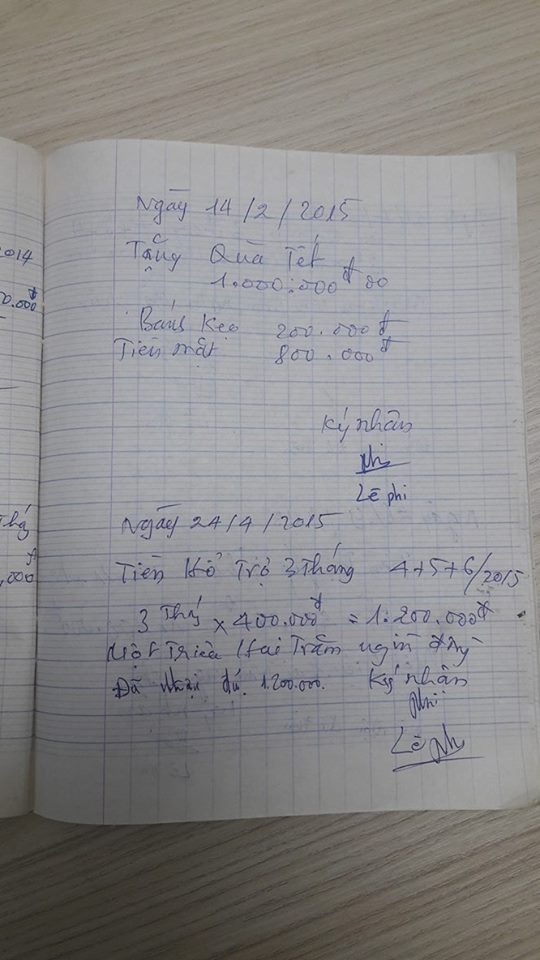 2014
0.000đ
Ngày 14/2/2015
Tặng Quà Tết
1.000.000đ 00
Bánh Kẹo 200.000đ
Tiền mặt 800.000đ
Ký nhân
Phi
Lê phi
Ngày 24/4/2015
Tháng
,000
Tiền Hổ Trợ 3 Tháng 4+5+6/2015
3 Thág x 400.000đ = 1.200.000đ
Một Triệu Hai Trăm ngìn đồng
Đã nhận đủ 1.200.000. Ký nhân
Phi
Lê Phi